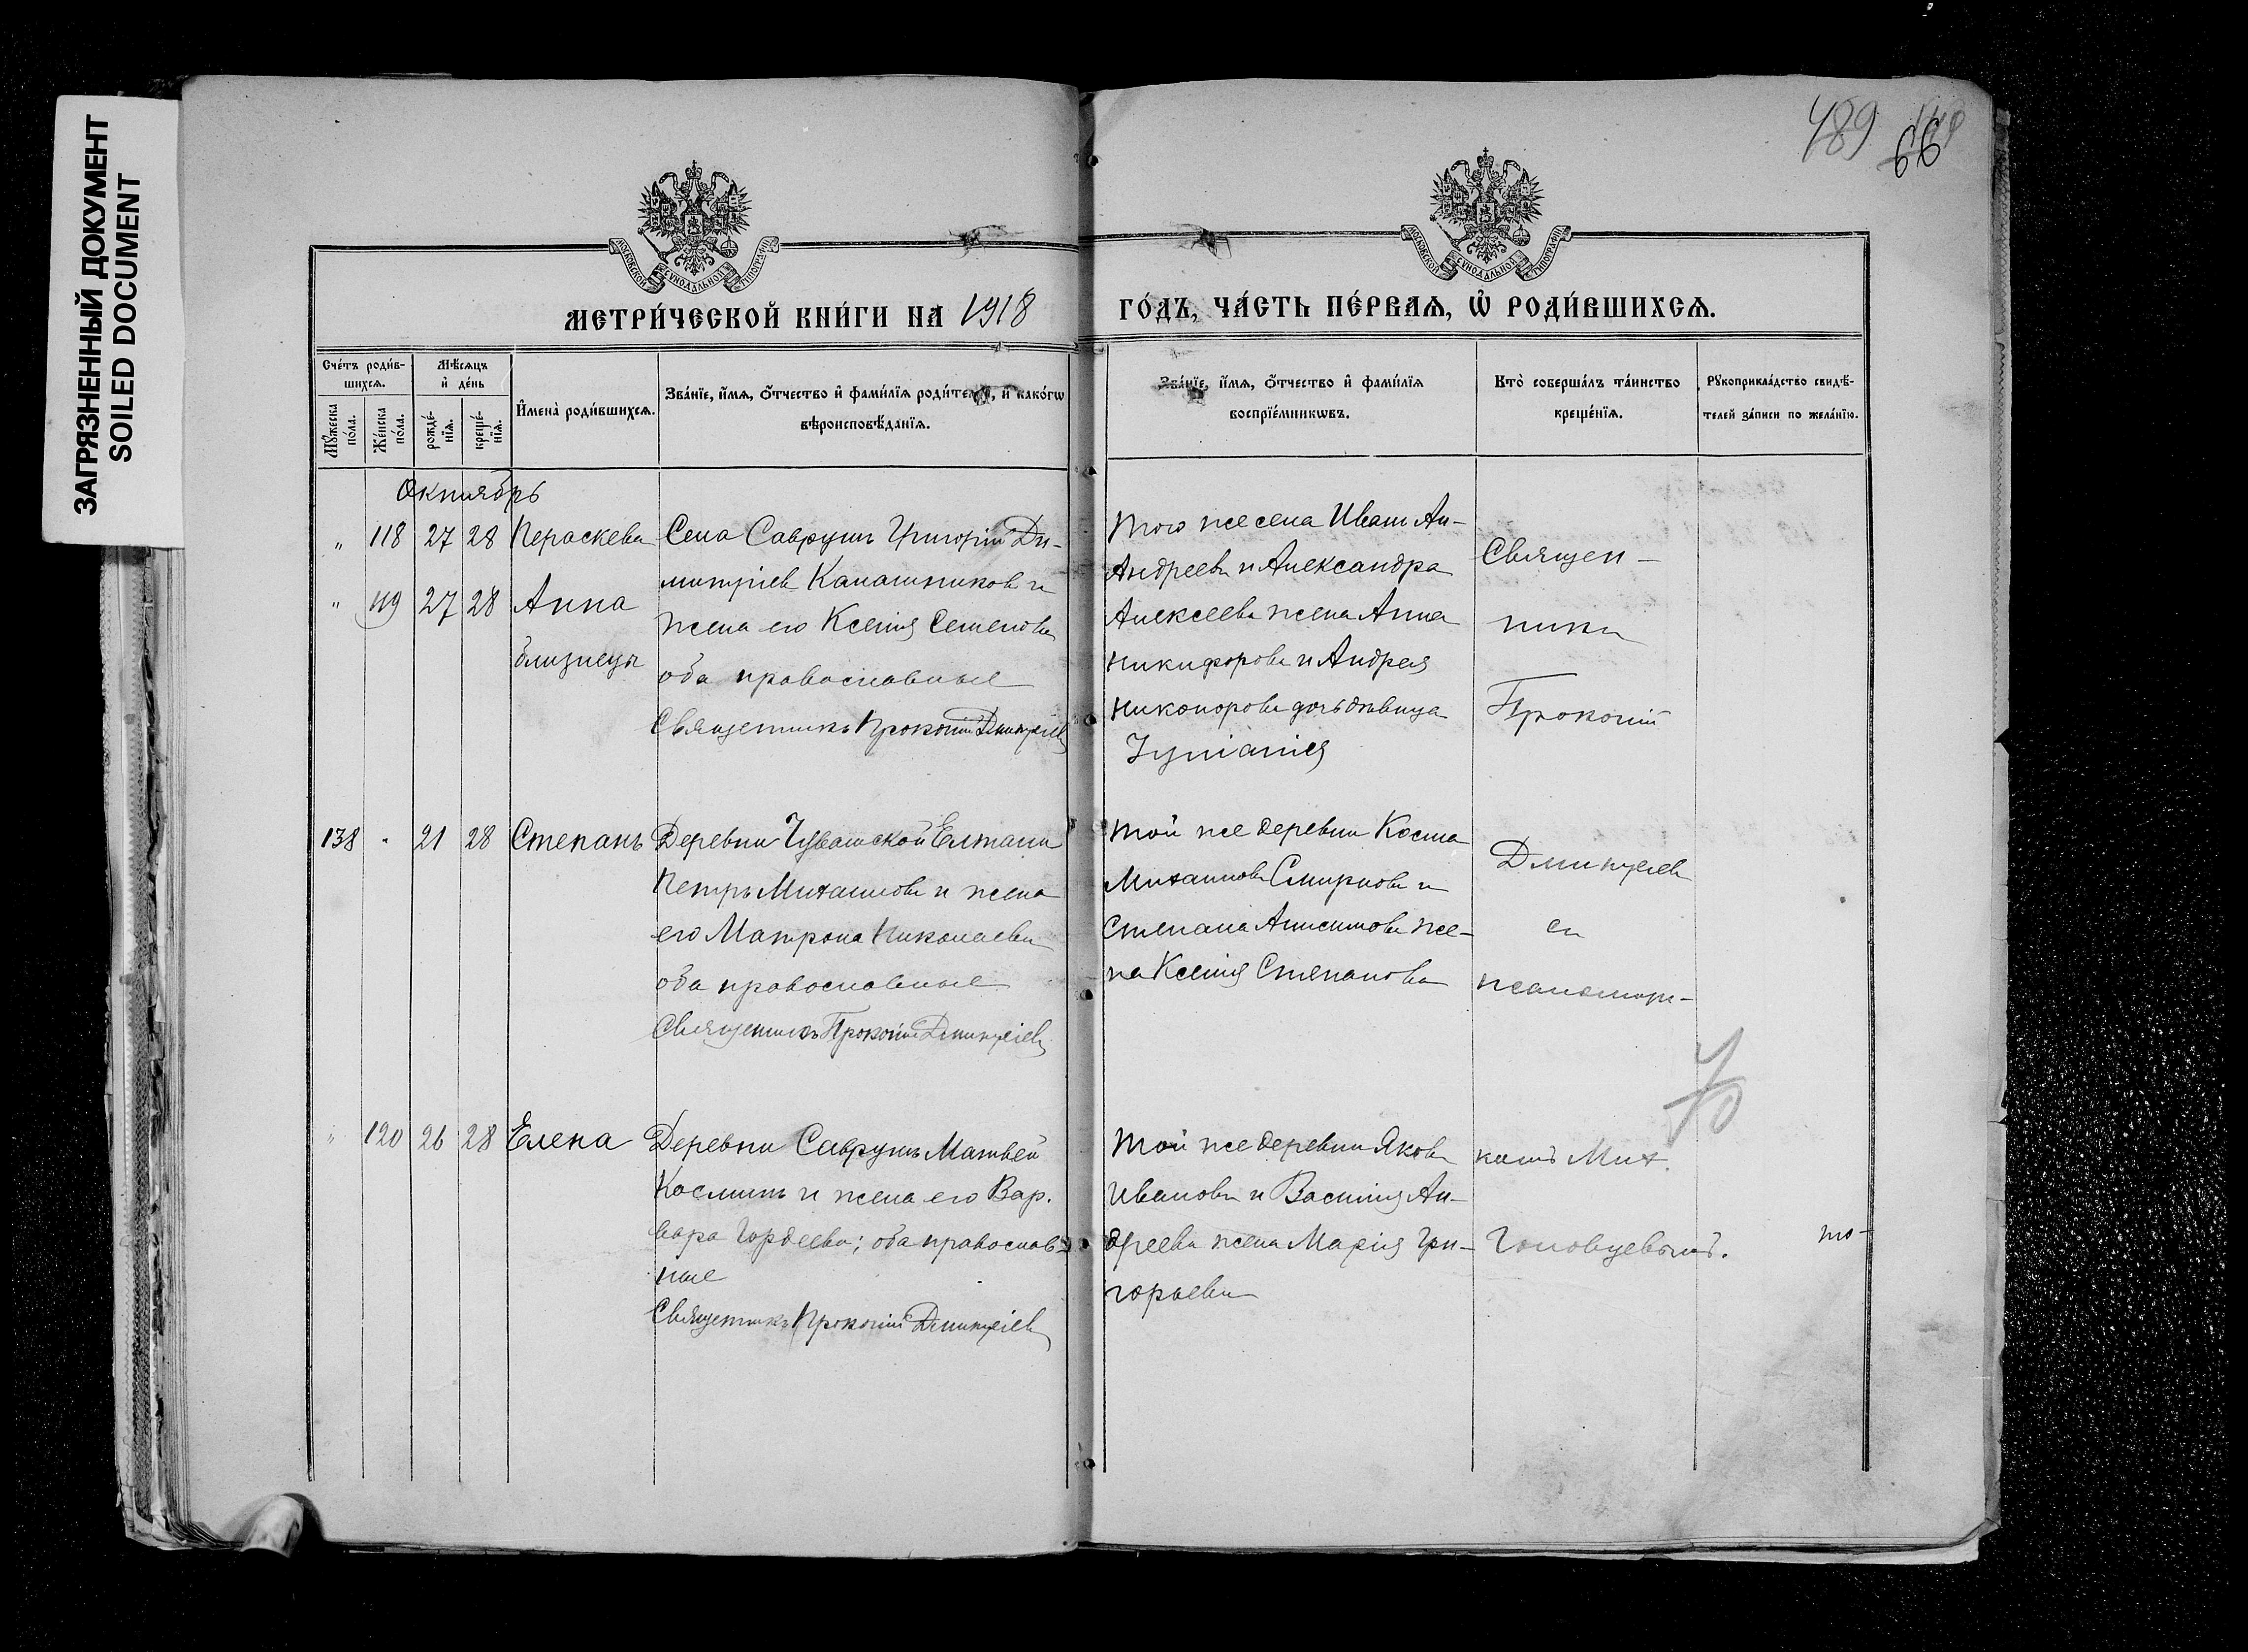 ЗАГРЯЗНЕННЫЙ ДОКУМЕНТ
SOILED DOCUMENT
489
66
МОСКОВСКОЙ СѴНОДАЛЬНОЙ ТИПОГРАФІИ
МОСКОВСКОЙ СѴНОДАЛЬНОЙ ТИПОГРАФІИ
МЕТРИ́ЧЕСКОЙ КНИ́ГИ НА 1918
ГО́ДЪ, ЧА́СТЬ ПЕ́РВАѦ, Ѽ РОДИ́ВШИХСѦ.
Сче́тъ роди́в-
шихсѧ.
Мꙋ́жеска
по́ла.
Же́нска
по́ла.
Мѣ́сѧцъ
и҆ де́нь
рожде́-
нїѧ.
креще́-
нїѧ.
И҆мена̀ роди́вшихсѧ.
Зва́нїе, и҆́мѧ, о҆́тчество и҆ фами́лїѧ роди́телей, и҆ како́гѡ
вѣроисповѣ́данїѧ.
Зва́нїе, и҆́мѧ, о҆́тчество и҆ фами́лїѧ
воспрїе́мникѡвъ.
Кто̀ соверша́лъ та́инство
креще́нїѧ.
Рꙋкоприкла́дство свидѣ́-
телей за́писи по жела́нїю.
Октябрь
" 118 27 28 Пераскева
" 119 27 28 Анна
близнецы
Села Саврушъ Григорій Ди-
митріев Калашников и
жена его Ксенія Семенова
оба православные
Священникъ Прокопій Димитріев
Того же села Иван Ан-
Андреев и Александра
Алексеева жена Анна
Никифорова и Андрея
Никонорова дочь девица
Іуліанія
Священ-
ники
Прокопій
138 " 21 28 Степанъ
Деревни Чувашской Елтани
Петръ Михаилов и жена
его Матрона Николаева
оба православные
Священникъ Прокопій Димитріев
Той же деревни Косма
Михаилов Смирнов и
Степана Анисимова же-
на Ксенія Степанова
Димитріев
съ
псаломщи-
" 120 26 28 Елена
Деревни Саврушъ Матвей
Космин и жена его Вар.
вара Гордеева; оба православ-
ные
Священникъ Прокопій Димитріев
Той же деревни Яков
Иванов и Василия Ан-
дреева жена Марія Гри-
горьева
комъ Мих.
Головцевымъ.
то-